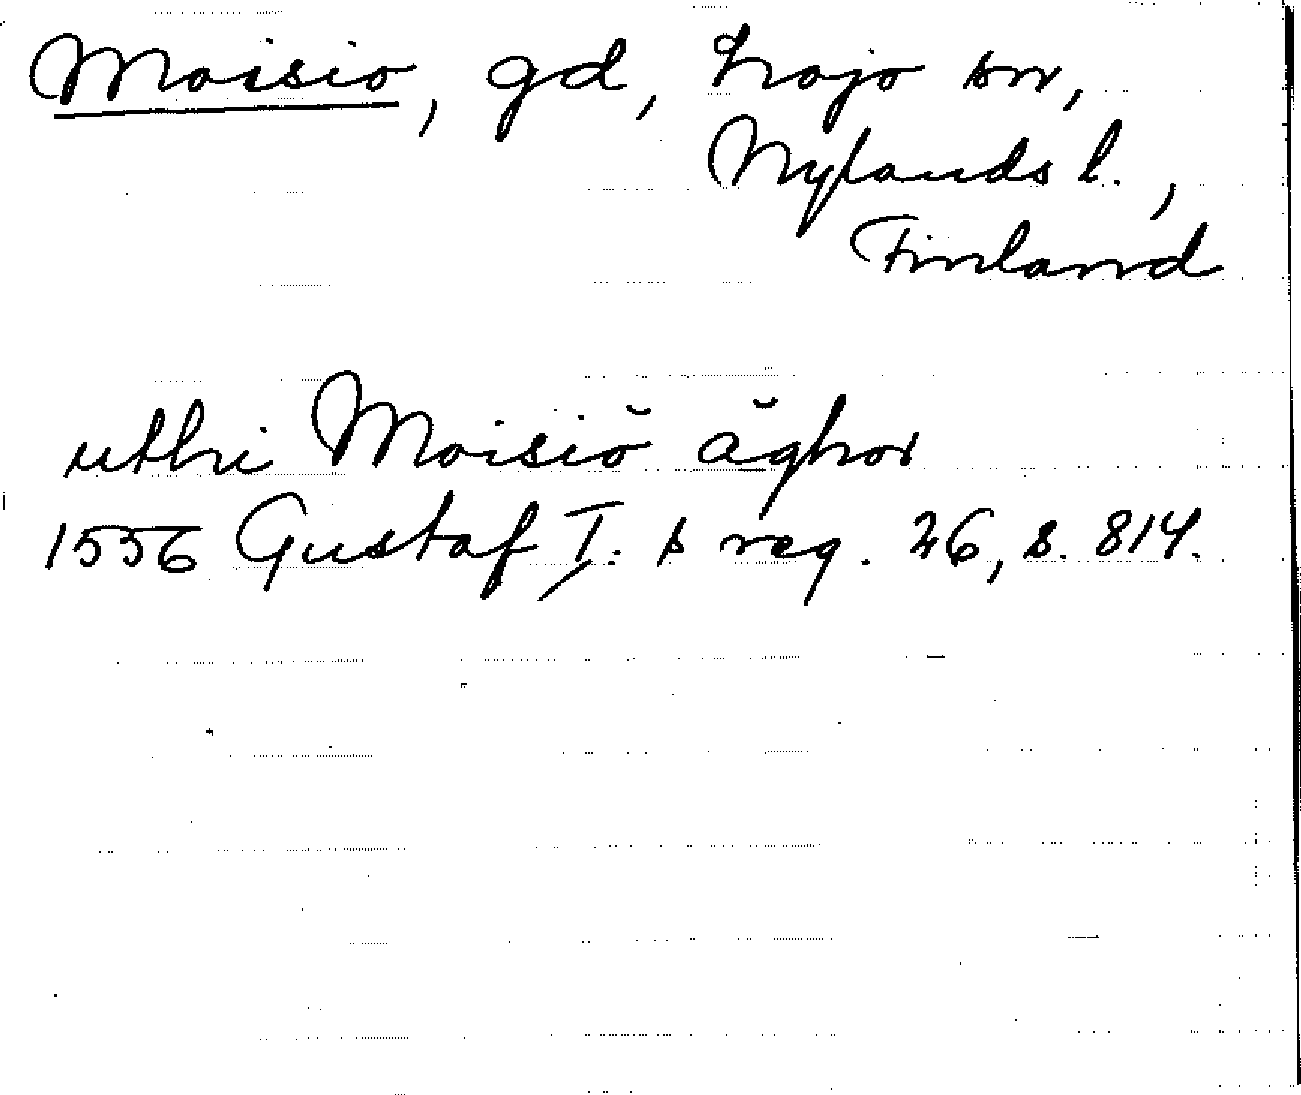 Moisio, gd, Lojo sn,
Nylands l.,
Finland
uthi Moisiŏ ăghor
1556 Gustaf I:s reg. 26, s. 814.